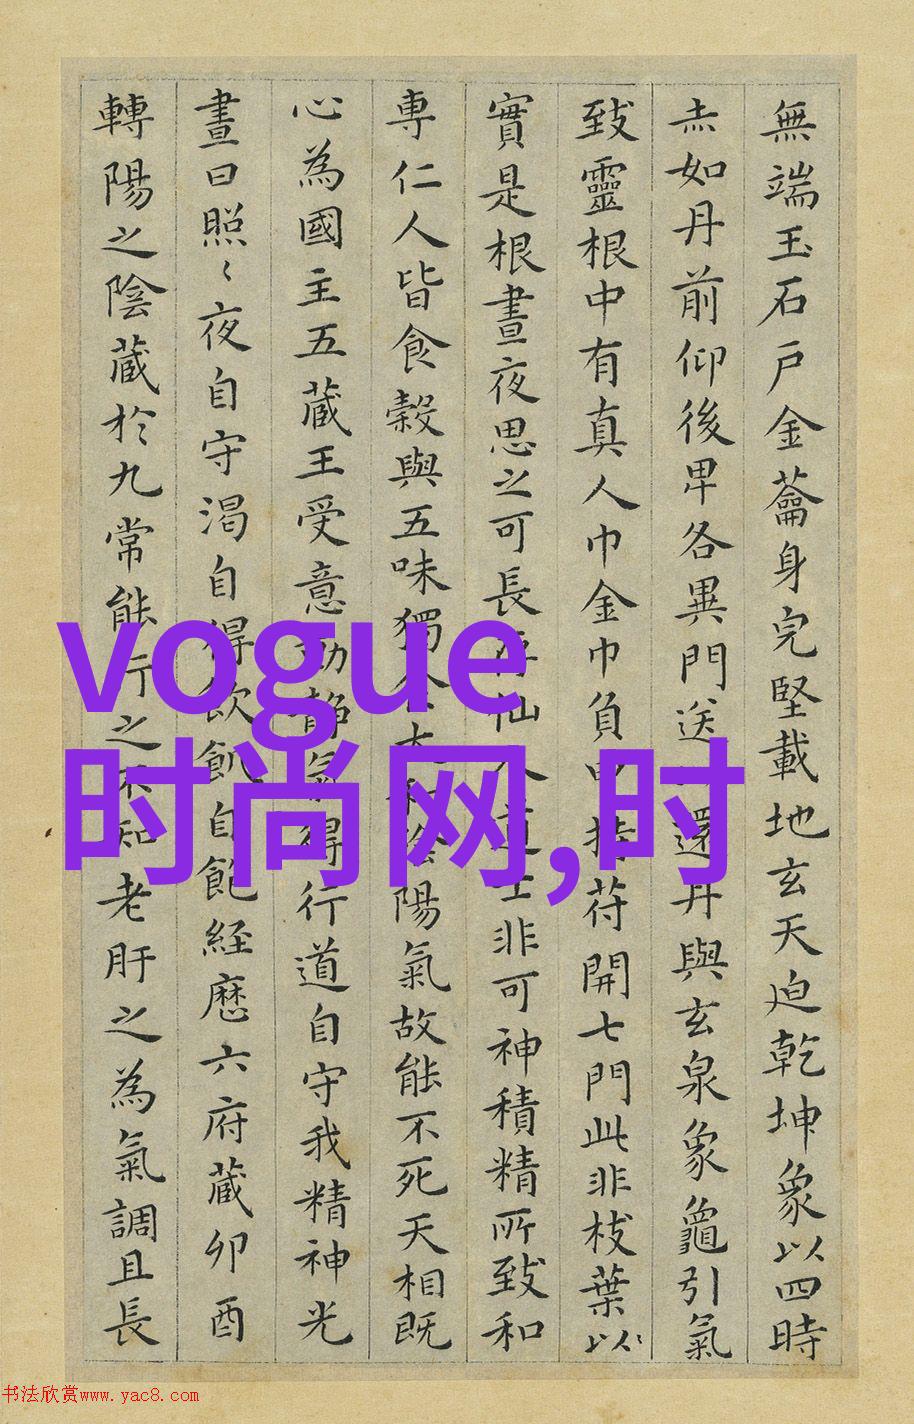 無端玉石戶金蘥身完堅載地玄天迫乾坤象以四時
赤如丹前仰後卑各異門送還丹與玄泉象龜引氣
致靈根中有真人巾金巾負甲持苻開七門此非枝葉以
實是根晝夜思之可長存仙人道士非可神積精所致和
專仁人皆食穀與五味獨食太和陰陽氣故能不死天相既
心為國主五藏王受意動静氣得行道自守我精神光
晝日照〻夜自守渴自得飲飢自飽経歷六府藏卯酉
轉陽之陰藏於九常能行之不知老肝之為氣調且長
vogue
时尚网,时
书法欣赏www.yac8.com